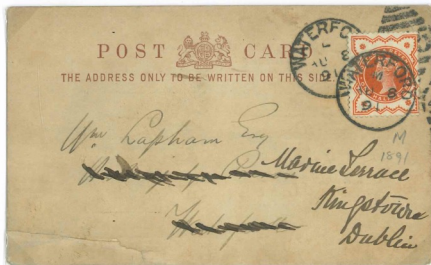 POST CARD
THE ADDRESS ONLY TO BE WRITTEN ON THIS SIDE
WATERFORD
L
AU 8
91
WATERFORD
M
AU 8
91
M
1891
Wm Lapham Esq
Marine Terrace
Kingstown
Dublin